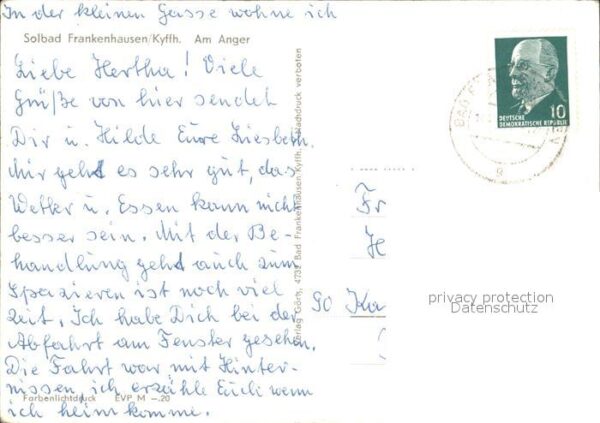 In der kleinen Gasse wohne ich
Solbad Frankenhausen/Kyffh. Am Anger
Liebe Hertha! Viele
Grüße von hier sendet
Dir u. Hilde Eure Liesbeth.
Mir geht es sehr gut, das
Wetter u. Essen kann nicht
besser sein. Mit der Be-
handlung geht auch zum
Spazieren ist noch viel
Zeit. Ich habe Dich bei der
Abfahrt am Fenster gesehen.
Die Fahrt war mit Hinter-
nissen, ich erzähle Euch wenn
ich heim komme.
Farbenlichtdruck EVP M -.20
Verlag Görtz, 4732 Bad Frankenhausen Kyffh. Nachdruck verboten
10
DEUTSCHE
DEMOKRATISCHE REPUBLIK
BAD
g
Fr
H
90 Ka
privacy protection
Datenschutz